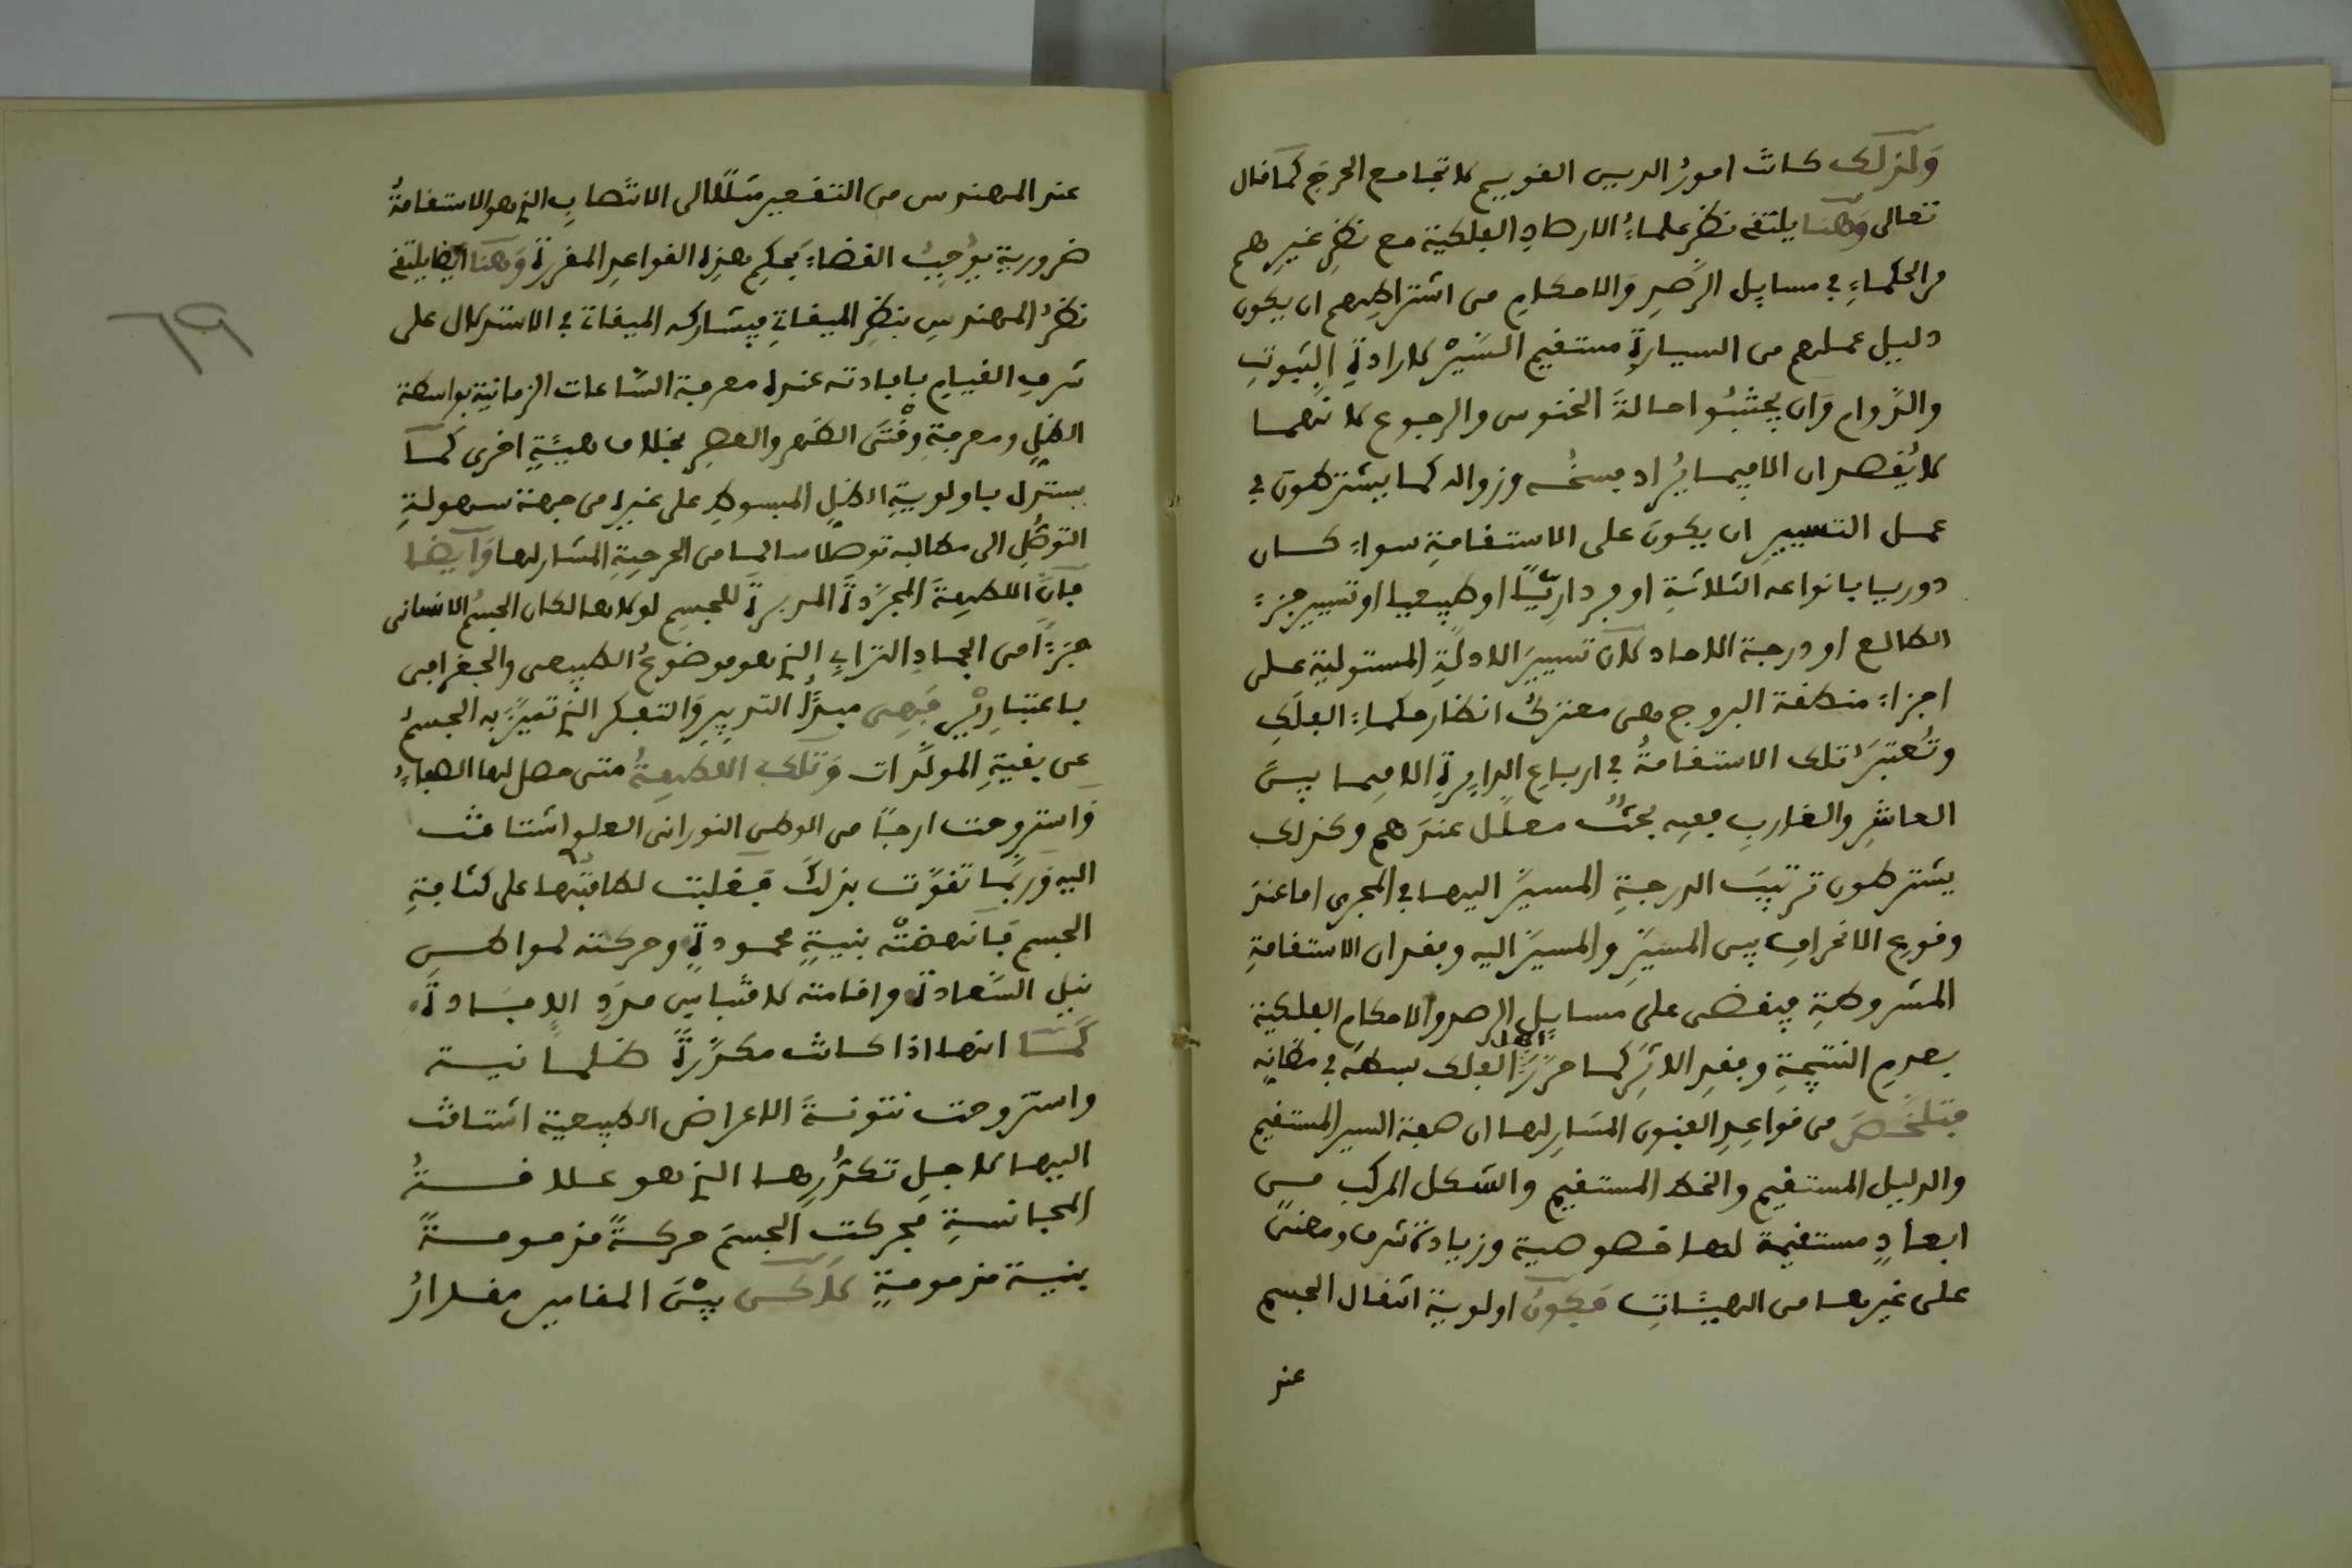 وَلذلك كانت امورُ الدين القويم لا تجامع الحرَج كما قال
تعالى وَهنا يلتقى نظرُ علماءِ الارصادِ الفلكية مع نظرِ غيرِهم
من الحكماءِ في مسايل الرَّصدِ وَالاحكامِ من اشتراطِهم ان يكون
دليل عملهم من السيارةِ مستقيم السَّيْر لارادةِ الثبوتِ
والدَّوام وَان يجتنبُوا حالةَ الخنوس والرجوع لانهما
لا يُقصدان الا فيما يُراد فسخُه وزواله كما يشترطون في
عمل التسيير ان يكون على الاستقامةِ سواءٌ كان
دوريا بانواعه الثلاثةِ او فرداريًّا او طبيعيا او تسيير جزءِ
الطالع او درجة الاحاد لان تسييرَ الادلَّةِ المستولية على
اجزاءِ منطقة البروج وهى معتركُ انظار حكماءِ الفلَكِ
وتُعتبَر تلك الاستقامةُ في ارباعِ الدايرةِ الا فيما بينَ
العاشِرِ والغاربِ ففيه بحثٌ معلَّل عندَهم وكذلك
يشترطون ترتيبَ الدرجةِ المسيَّر اليها في المجرى اما عند
وقوعِ الانحرافِ بين المسيَّرِ والمسيَّر اليه وفقدان الاستقامةِ
المشروطةِ فيقضى على مسايلِ الرصد والاحكامِ الفلكية
بعدمِ النتيجةِ وفقدِ الاثَرِ كما حرَّرَ اهل الفلك بسطَه في مظانِّه
فتلخَّص من قواعدِ الفنون المشارِ لها ان صفة السير المستقيم
والدليل المستقيم والخط المستقيم والشكل المركب من
ابعادٍ مستقيمة لها خصوصية وزيادة شرف ومعنىً
على غيرها من الهيئاتِ فتكونُ اولوية انتقال الجسم
عند
عند المهندس من التقعير مثلًا الى الانتصابِ الذى هو الاستقامةُ
ضرورية يوُجبُ القضاءَ بحكم هذه القواعدِ المقررة وَهنا ايضا يلتقى
نظرُ المهندسِ بنظرِ الميقاتى فيشاركه الميقاتى في الاستدلال على
شرفِ القيامِ بافادته عنده معرفة السَّاعات الزمانية بواسطة
الظلِّ ومعرفةِ وقْتَى الظهر والعصرِ بخلاف هيئةٍ اخرى كما
يستدل باولويةِ الظلِّ المبسوطِ على غيره من جهة سهولةِ
التوصُّلِ الى مطالبه توصلا سالما من الحرجيةِ المشار لها وَايضا
فانَّ اللطيفةَ المجرَّدةَ المدبرةَ للجسمِ لولاها لكان الجسمُ الانسانى
جزءًا من الجمادِ الترابى الذى هو موضوعُ الطبيعى والجغرافى
باعتبارَيْن فهى مبدَأُ التدبيرِ وَالتفكرِ الذى تميَّزَ به الجسمُ
عن بقيةِ المولَّدات وَتلك اللطيفةُ متى حصل لها الصفاءُ
وَاستروحت ارجًا من الوطن النورانى العلوى اشتاقت
اليه وَربما تقوَّت بذلك فغلبت لطافتُها على كثافةِ
الجسم فانهضتْه بنيةٍ محمودةٍ وحركته لمواطن
نيل السَّعادة واقامته لاقتباس مدَدِ الافادة
كما انها اذا كانت مكدَّرةً ظلمانية
واستروحت نتونةَ الاعراض الطبيعية اشتاقت
اليها لاجل تكدُّرِها الذى هو علاقةُ
المجانسةِ فحركت الجسمَ حركةً مذمومةً
بنيةٍ مذمومةٍ لكن بيْنَ المقامين مقدارُ